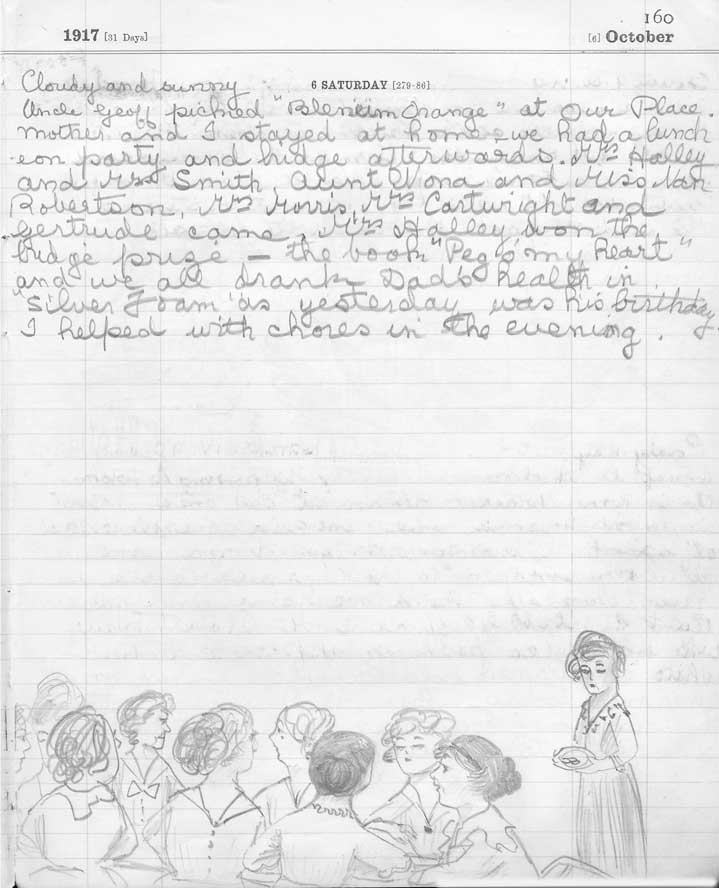 160
1917 [31 Days]
[6] October
6 SATURDAY [279-86]
Cloudy and sunny
Uncle Geoff picked "Bleneim Orange" at Our Place.
Mother and I stayed at home, we had a lunch
eon party and bridge afterwards. Mrs Halley
and Mrs Smith, Aunt Nona and Miss Nan
Robertson, Mrs Morris, Mrs Cartwright and
Gertrude came. Mrs Halley won the
bridge prize — the book "Peg o' my heart"
and we all drank Dad's health in
"Silver Foam" as yesterday was his birthday.
I helped with chores in the evening.